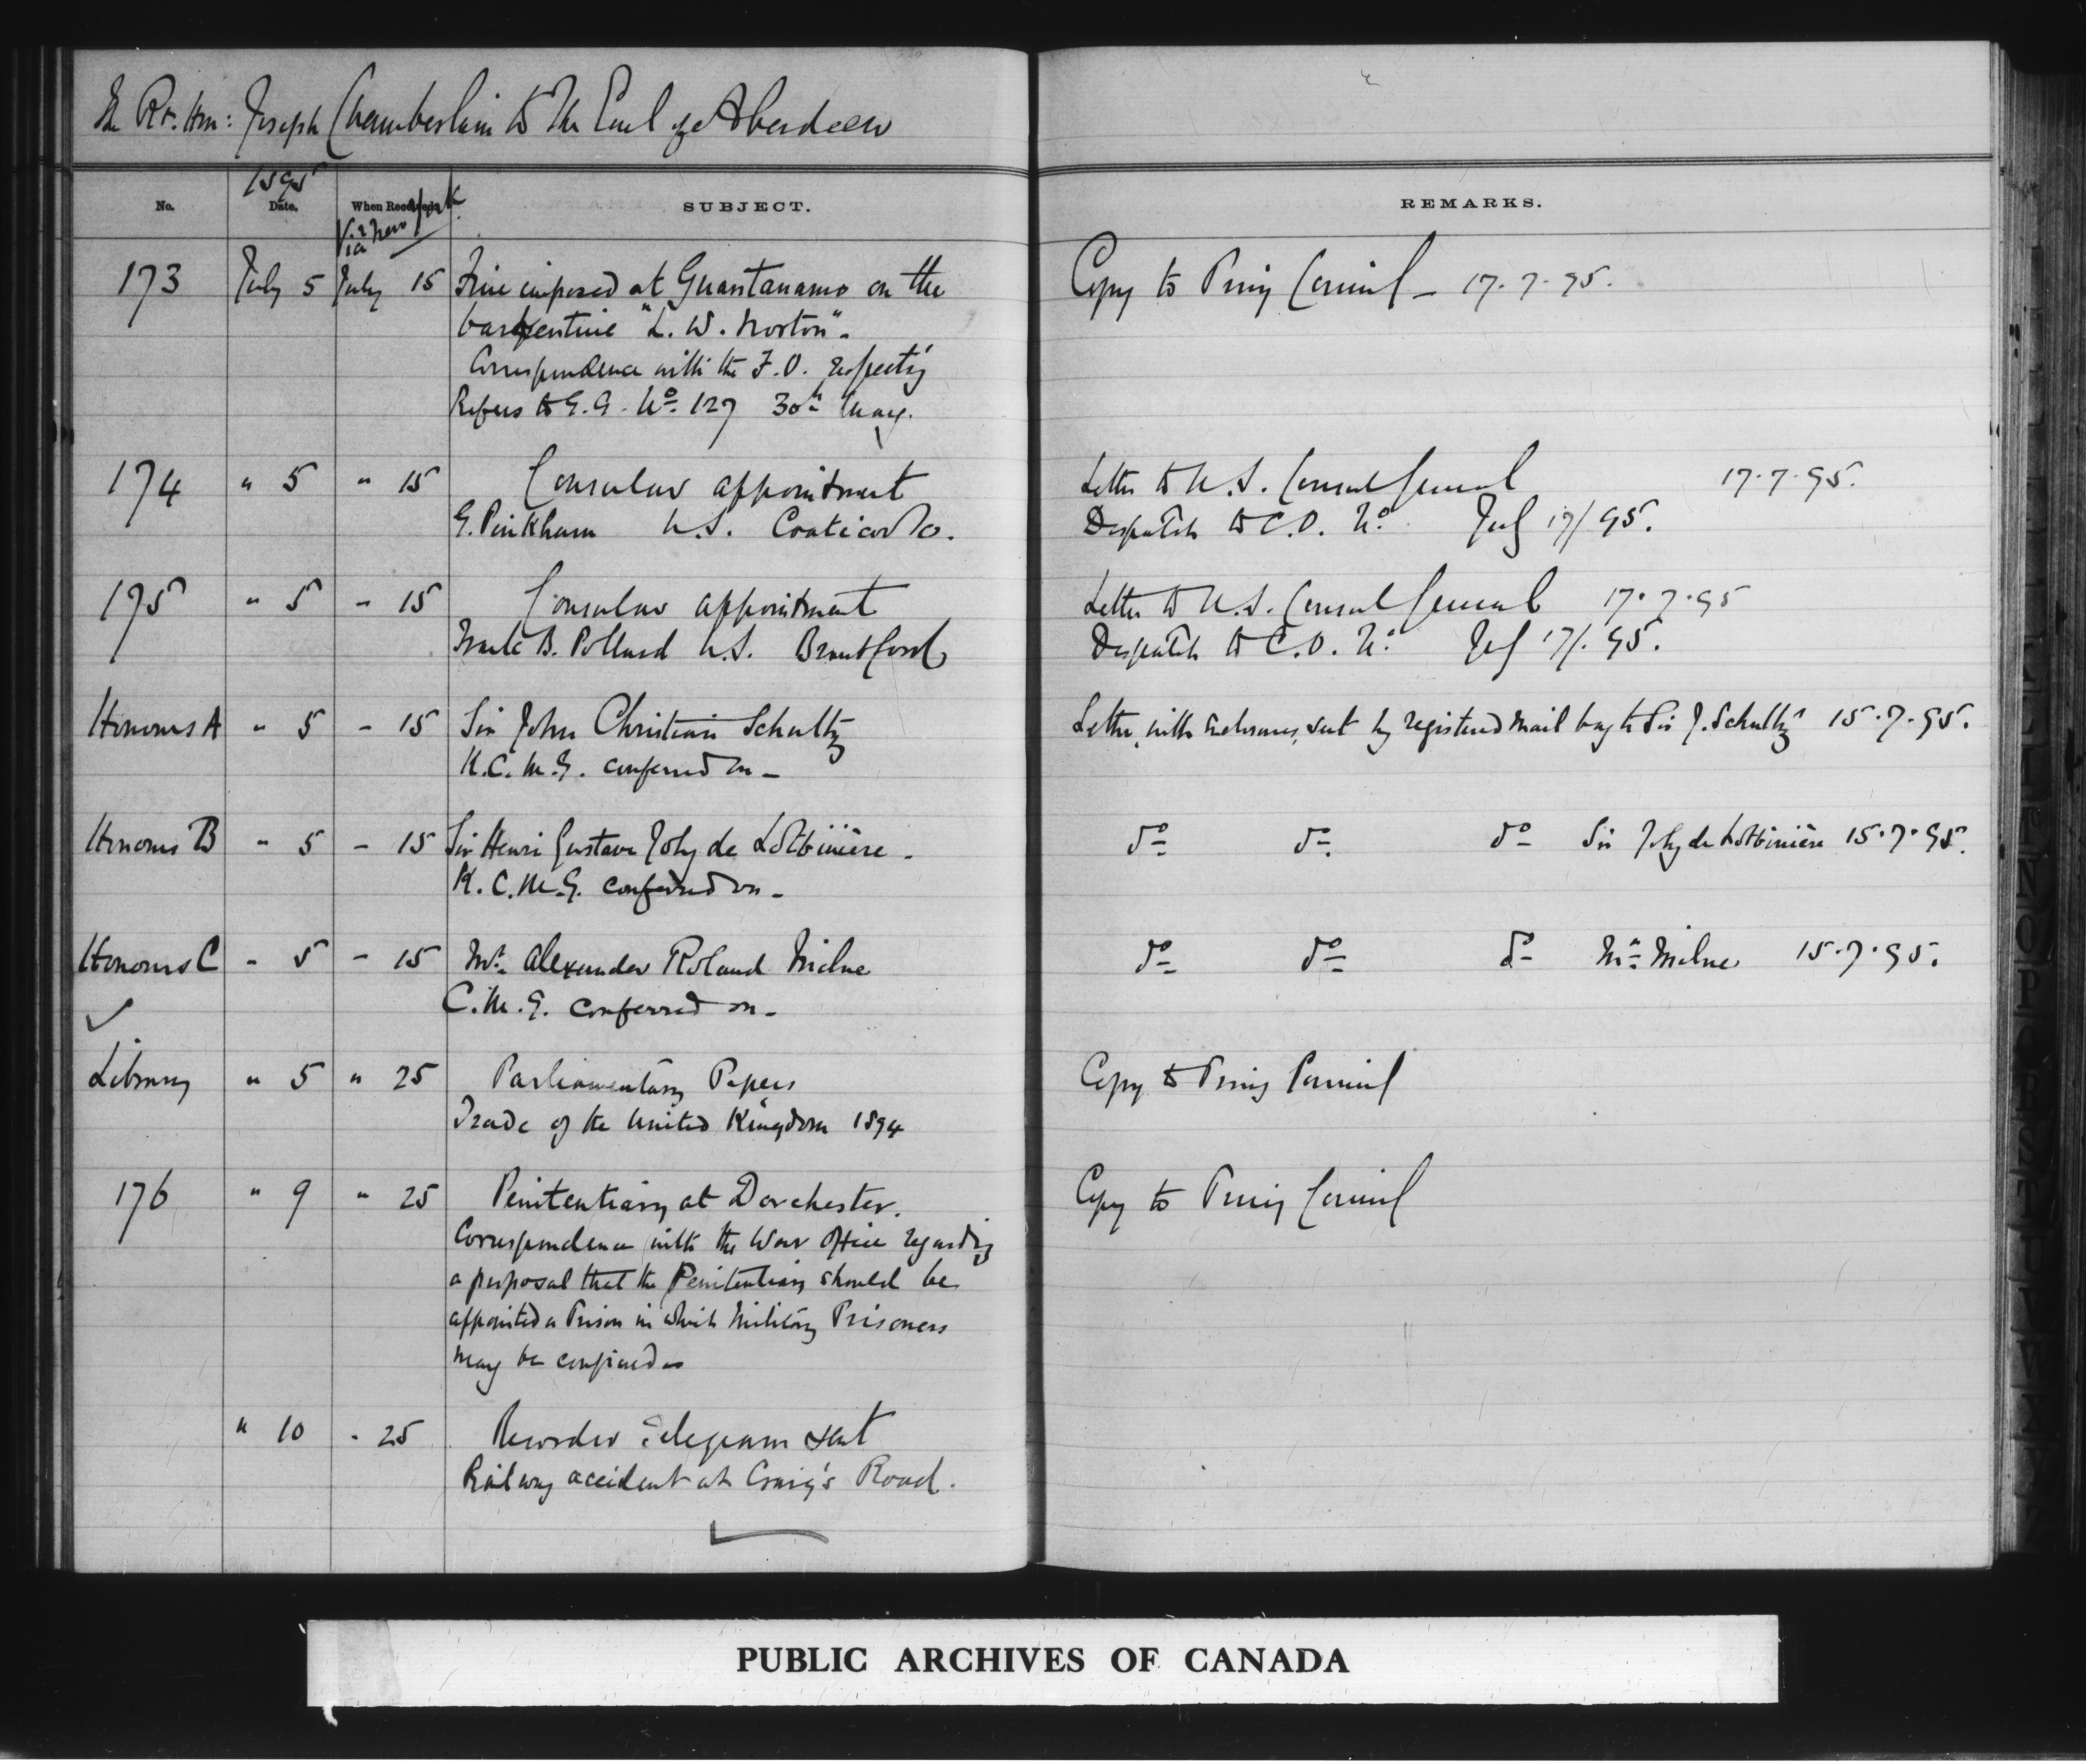 The Rt. Hon: Joseph Chamberlain to The Earl of Aberdeen
No. 1895 Date. When Received. Via New York SUBJECT. REMARKS.
173 July 5 July 15 Fine imposed at Guantanamo on the Copy to Privy Council — 17.7.95.
barkentine "L. W. Norton".
Correspondence with the F.O. respectg
Refers to G.G. No. 127 30th May.
174 " 5 " 15 Consular appointment Letter to U.S. Consul General 17.7.95.
G. Pinkham U.S. Coaticook. Despatch to C.O. No. July 17/95.
175 " 5 " 15 Consular appointment Letter to U.S. Consul General 17.7.95
B. Pollard U.S. Brantford Despatch to C.O. No. July 17/.95.
Honours A " 5 " 15 Sir John Christian Schultz Letter, with enclosures, sent by registered mail bag to Sir J. Schultz 15.7.95.
K.C.M.G. conferred on —
Honours B " 5 " 15 Sir Henri Gustave Joly de Lotbinière - do do. do Sir Joly de Lotbinière 15.7.95.
K.C.M.G. conferred on —
Honours C " 5 " 15 Mr. Alexander Roland Milne do do do Mr. Milne 15.7.95.
C.M.G. conferred on —
Library " 5 " 25 Parliamentary Papers Copy to Privy Council
Trade of the United Kingdom 1894
176 " 9 " 25 Penitentiary at Dorchester. Copy to Privy Council
Correspondence with the War Office regarding
a proposal that the Penitentiary should be
appointed a Prison in which Military Prisoners
may be confined
" 10 " 25 Records telegram sent
Railway accident at Craig's Road.
PUBLIC ARCHIVES OF CANADA